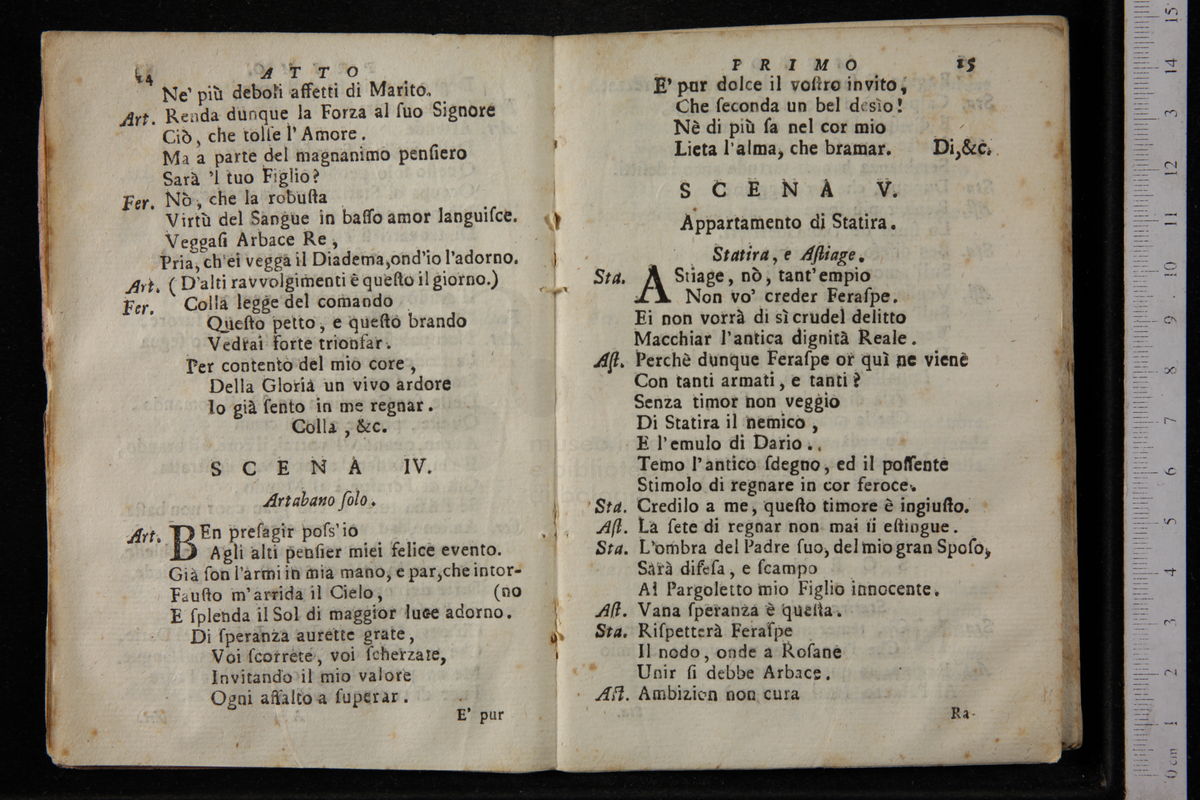 14 ATTO
Ne' più deboli affetti di Marito.
Art. Renda dunque la Forza al ſuo Signore
Ciò, che tolſe l'Amore.
Ma a parte del magnanimo penſiero
Sarà 'l tuo Figlio?
Fer. Nò, che la robuſta
Virtù del Sangue in baſſo amor languiſce.
Veggaſi Arbace Re,
Pria, ch'ei vegga il Diadema, ond'io l'adorno.
Art. (D'alti ravvolgimenti è queſto il giorno.)
Fer. Colla legge del comando
Queſto petto, e queſto brando
Vedrai forte trionfar.
Per contento del mio core,
Della Gloria un vivo ardore
Io già ſento in me regnar.
Colla, &c.
SCENA IV.
Artabano ſolo.
Art. BEn preſagir poſs'io
Agli alti penſier miei felice evento.
Già ſon l'armi in mia mano, e par, che intor-
Fauſto m'arrida il Cielo, (no
E ſplenda il Sol di maggior luce adorno.
Di ſperanza aurette grate,
Voi ſcorrete, voi ſcherzate,
Invitando il mio valore
Ogni aſſalto a ſuperar.
E' pur
PRIMO 15
E' pur dolce il voſtro invito,
Che ſeconda un bel desìo!
Nè di più ſa nel cor mio
Lieta l'alma, che bramar. Di, &c.
SCENA V.
Appartamento di Statira.
Statira, e Aſtiage.
Sta. AStiage, nò, tant'empio
Non vo' creder Feraſpe.
Ei non vorrà di sì crudel delitto
Macchiar l'antica dignità Reale.
Aſt. Perchè dunque Feraſpe or quì ne viene
Con tanti armati, e tanti?
Senza timor non veggio
Di Statira il nemico,
E l'emulo di Dario.
Temo l'antico ſdegno, ed il poſſente
Stimolo di regnare in cor feroce.
Sta. Credilo a me, queſto timore è ingiuſto.
Aſt. La ſete di regnar non mai ſi eſtingue.
Sta. L'ombra del Padre ſuo, del mio gran Spoſo,
Sarà difeſa, e ſcampo
Al Pargoletto mio Figlio innocente.
Aſt. Vana ſperanza è queſta.
Sta. Riſpetterà Feraſpe
Il nodo, onde a Roſane
Unir ſi debbe Arbace.
Aſt. Ambizion non cura
Ra-
0 cm 1 2 3 4 5 6 7 8 9 10 11 12 13 14 15